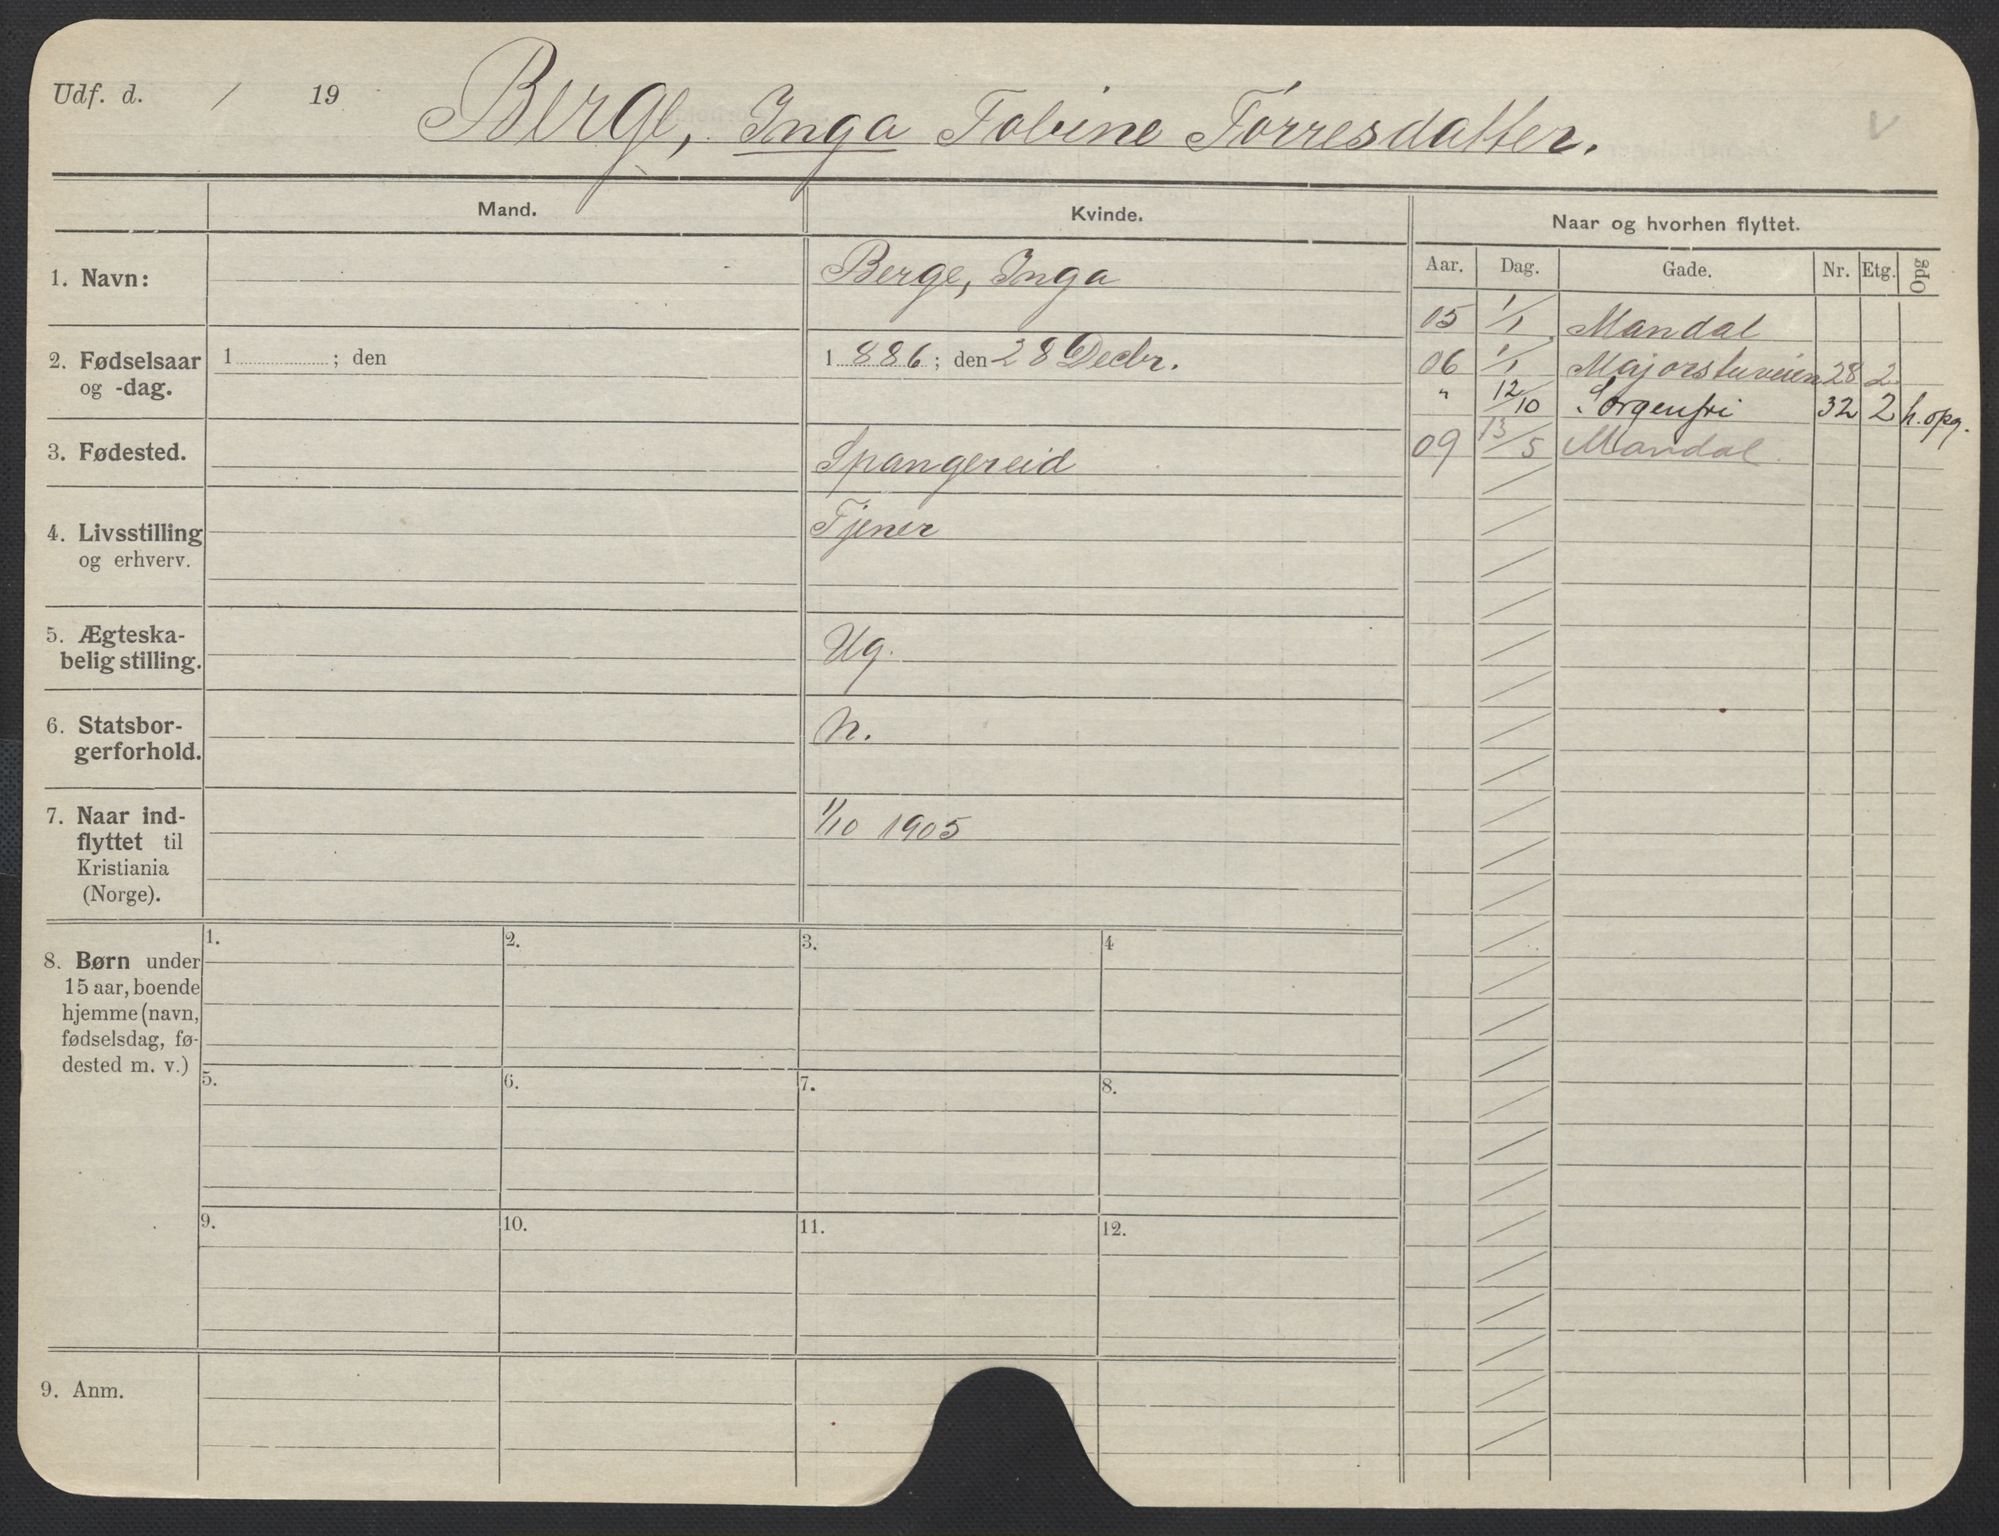 Udf. d. / 19 Berge, Inga Tobine Tørresdatter.
Mand. Kvinde. Naar og hvorhen flyttet.
Aar. Dag. Gade. Nr. Etg. Opg
1. Navn: Berge, Inga
2. Fødselsaar
og -dag.
1 ; den
1 886 ; den 28 Decbr.
3. Fødested. Spangereid
4. Livsstilling
og erhverv.
Tjener
5. Ægteska-
belig stilling.
Ug.
6. Statsbor-
gerforhold.
n.
7. Naar ind-
flyttet til
Kristiania
(Norge).
1/10 1905
05 1/1 Mandal
06 1/1 Majorstuveien 28 2
" 12/10 Sorgenfri 32 2 h. opg.
09 13/5 Mandal
8. Børn under
15 aar, boende
hjemme (navn,
fødselsdag, fø-
dested m. v.)
1. 2. 3. 4
5. 6. 7. 8.
9. 10. 11. 12.
9. Anm.